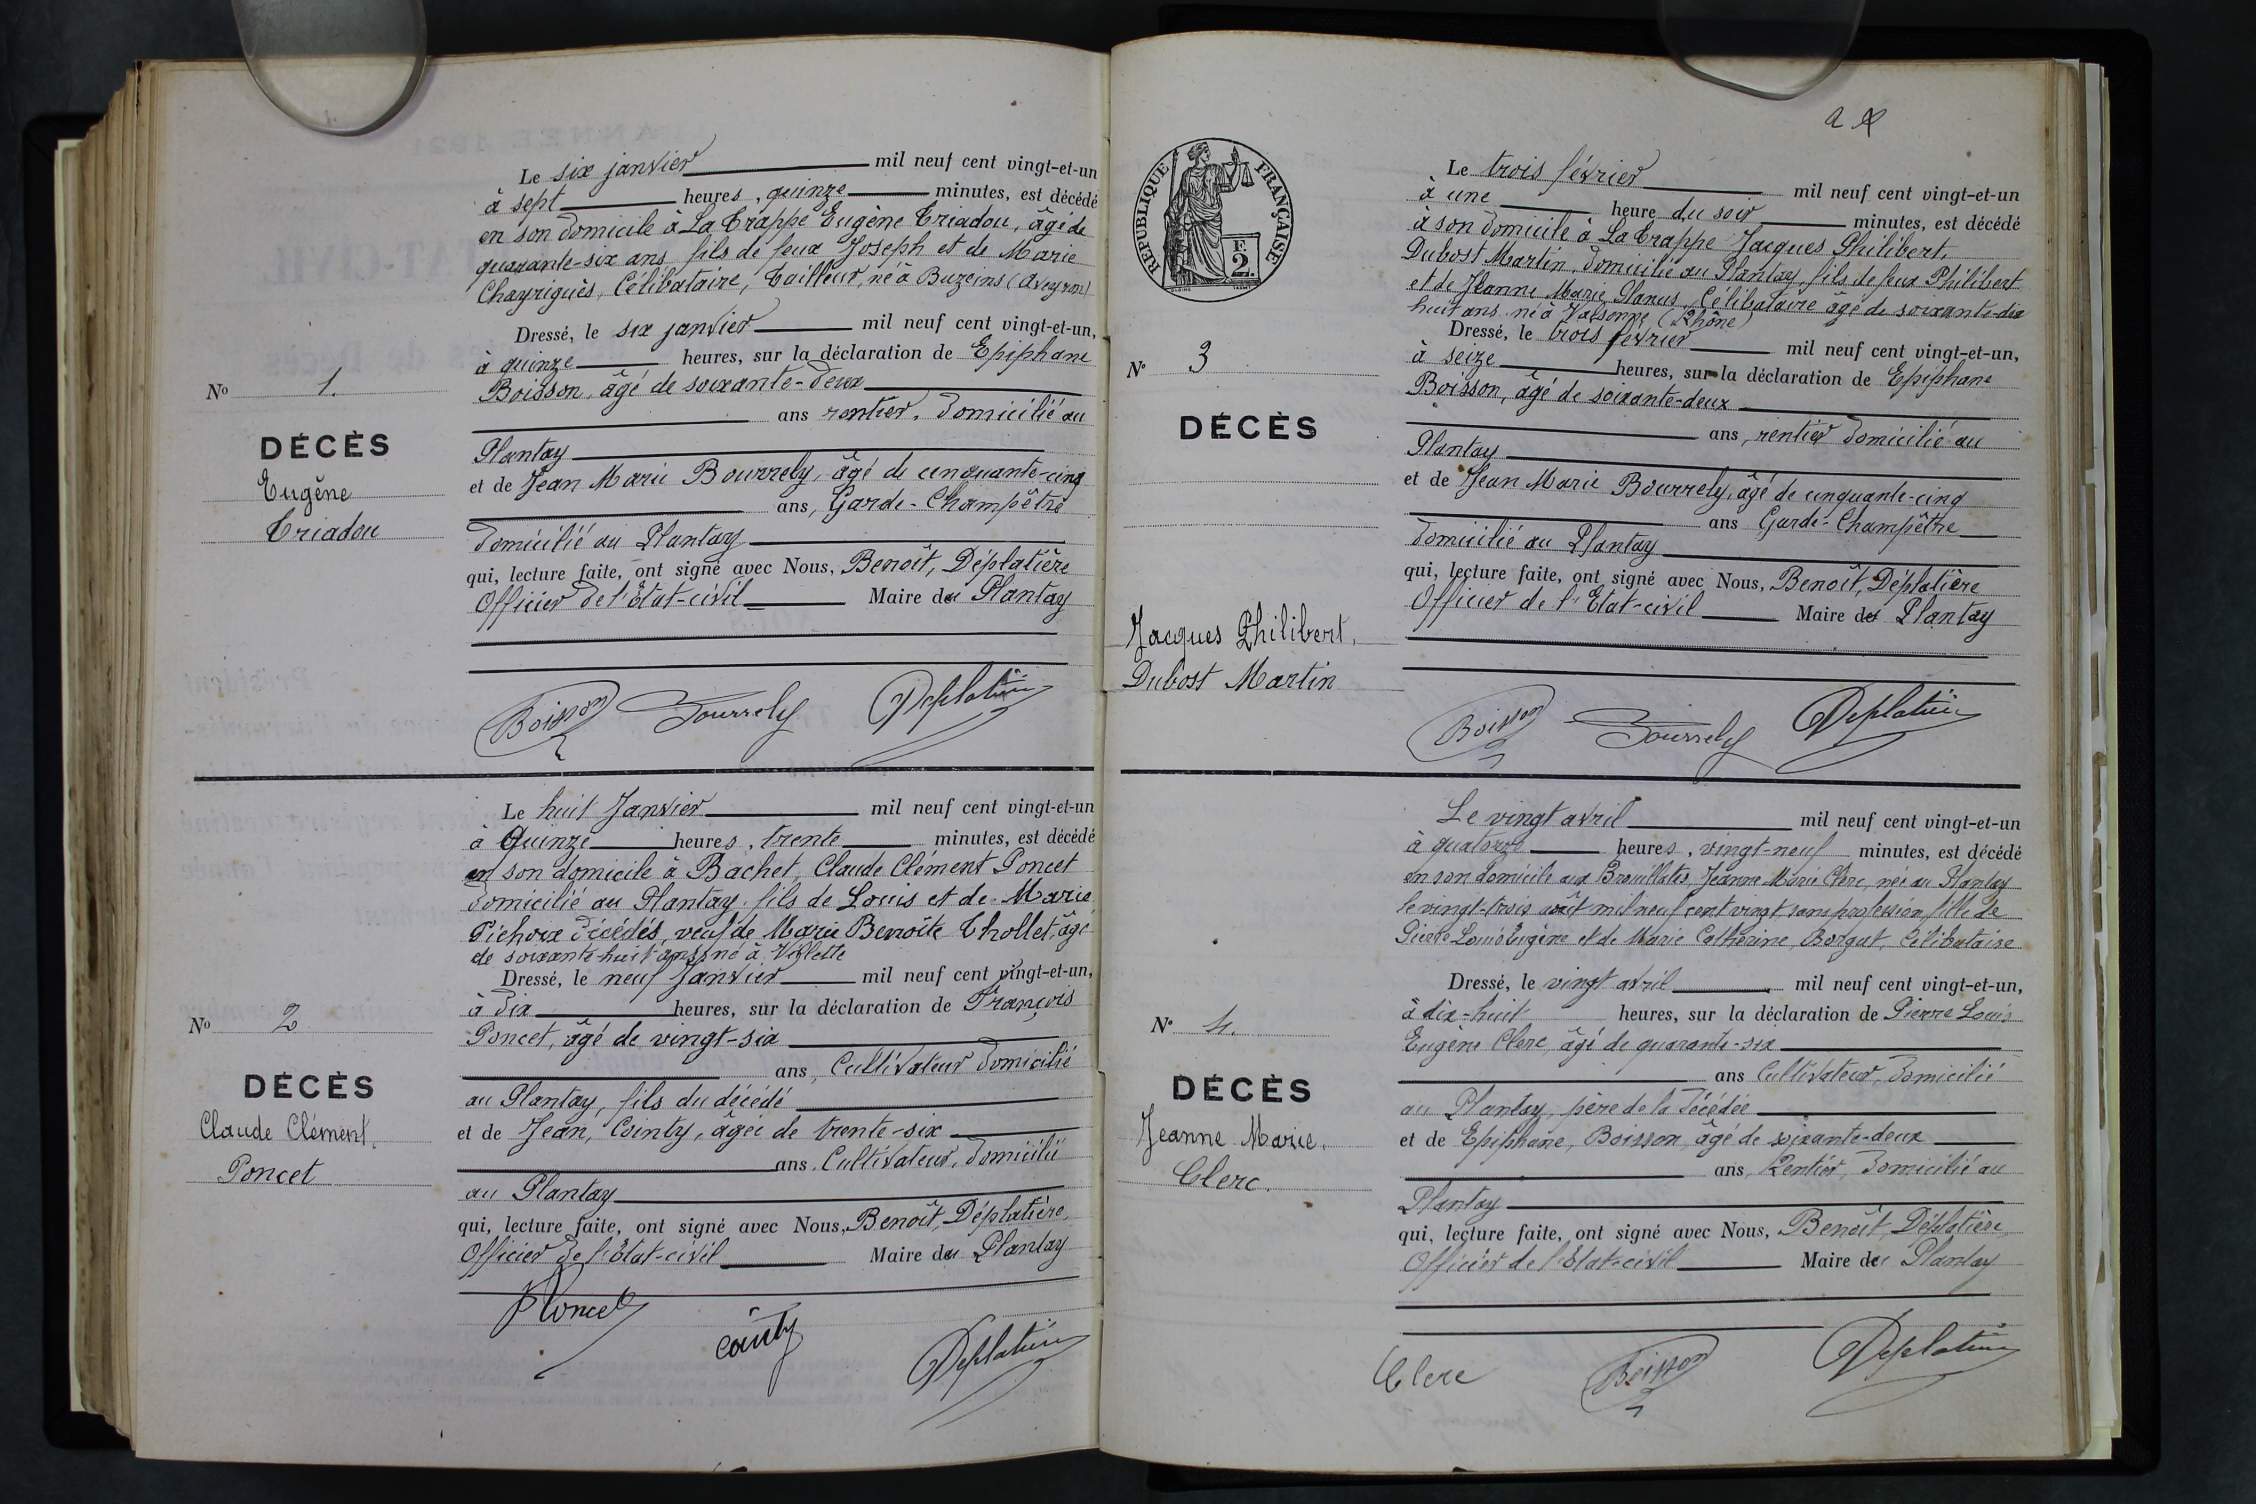 Le six janvier mil neuf cent vingt-et-un
à sept heures, quinze minutes, est décédé
en son domicile à La Trappe Eugène Triadou, âgé de
quarante-six ans, fils de feux Joseph et de Marie
Chayriguès, Célibataire, Tailleur, né à Buzeins (Aveyron)
Dressé, le six janvier mil neuf cent vingt-et-un,
à quinze heures, sur la déclaration de Epiphane
Boisson, âgé de soixante-deux
ans rentier, domicilié au
Plantay
et de Jean Marie Bourrely, âgé de cinquante-cinq
ans, Garde-Champêtre
domicilié au Plantay
qui, lecture faite, ont signé avec Nous, Benoît, Déplatière
Officier de l'Etat-civil Maire du Plantay
No 1.
DÉCÈS
Eugène
Triadou
Boisson Bourrely Déplatière
Le huit Janvier mil neuf cent vingt-et-un
à Quinze heures, trente minutes, est décédé
en son domicile à Bachet, Claude Clément Poncet
domicilié au Plantay, fils de Louis et de Marie
Pichoux décédés, veuf de Marie Benoîte Thollet, âgé
de soixante-huit ans, né à Villette
Dressé, le neuf Janvier mil neuf cent vingt-et-un,
à dix heures, sur la déclaration de François
Poncet, âgé de vingt-six
ans, Cultivateur domicilié
au Plantay, fils du décédé
et de Jean, Cointy, âgé de trente-six
ans, Cultivateur, domicilié
au Plantay
qui, lecture faite, ont signé avec Nous, Benoît, Déplatière,
Officier de l'Etat-civil Maire du Plantay
No 2
DÉCÈS
Claude Clément,
Poncet
Poncet
Cointy
Déplatière
RÉPUBLIQUE FRANÇAISE
F.
2.
Le trois février mil neuf cent vingt-et-un
à une heure du soir minutes, est décédé
à son domicile à La Trappe Jacques Philibert,
Dubost Martin, domicilié au Plantay, fils de feux Philibert
et de Jeanne Marie Planus, Célibataire âgé de soixante-dix
huit ans né à Valsonne (Rhône)
Dressé, le trois février mil neuf cent vingt-et-un,
à seize heures, sur la déclaration de Epiphane
Boisson, âgé de soixante-deux
ans, rentier domicilié au
Plantay
et de Jean Marie Bourrely, âgé de cinquante-cinq
ans Garde-Champêtre
domicilié au Plantay
qui, lecture faite, ont signé avec Nous, Benoît, Déplatière
Officier de l'Etat-civil Maire du Plantay
No 3
DÉCÈS
Jacques Philibert,
Dubost Martin
Boisson Bourrely Déplatière
Le vingt avril mil neuf cent vingt-et-un
à quatorze heures, vingt-neuf minutes, est décédé
en son domicile aux Brouillates, Jeanne Marie Clerc, née au Plantay
le vingt-trois août mil neuf cent vingt sans profession, fille de
Pierre Louis Eugène et de Marie Catherine, Borgat, Célibataire
Dressé, le vingt avril mil neuf cent vingt-et-un,
à dix-huit heures, sur la déclaration de Pierre Louis
Eugène Clerc, âgé de quarante-six
ans Cultivateur, domicilié
au Plantay, père de la décédée
et de Epiphane, Boisson, âgé de soixante-deux
ans, Rentier, domicilié au
Plantay
qui, lecture faite, ont signé avec Nous, Benoît, Déplatière,
Officier de l'Etat-civil Maire du Plantay
No 4.
DÉCÈS
Jeanne Marie,
Clerc.
Clerc Boisson Déplatière